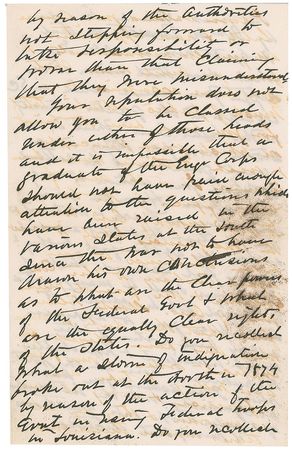 by reason of the Authorities
not stepping forward to
take responsibility or
worse than that claiming
that they were misunderstood
Your reputation does not
allow you to be classed
under either of those heads
and it is impossible that a
graduate of the Engr Corps
should not have paid enough
attention to the questions which
have been raised in the
various States at the South
since the war not to have
drawn his own conclusions
as to what are the clear powers
of the Federal Govt & what
are the equally clear rights
of the States. Do you recollect
what a storm of indignation
broke out at the North in 1874
by reason of the action of the
Govt in using Federal troops
in Louisiana. Do you recollect